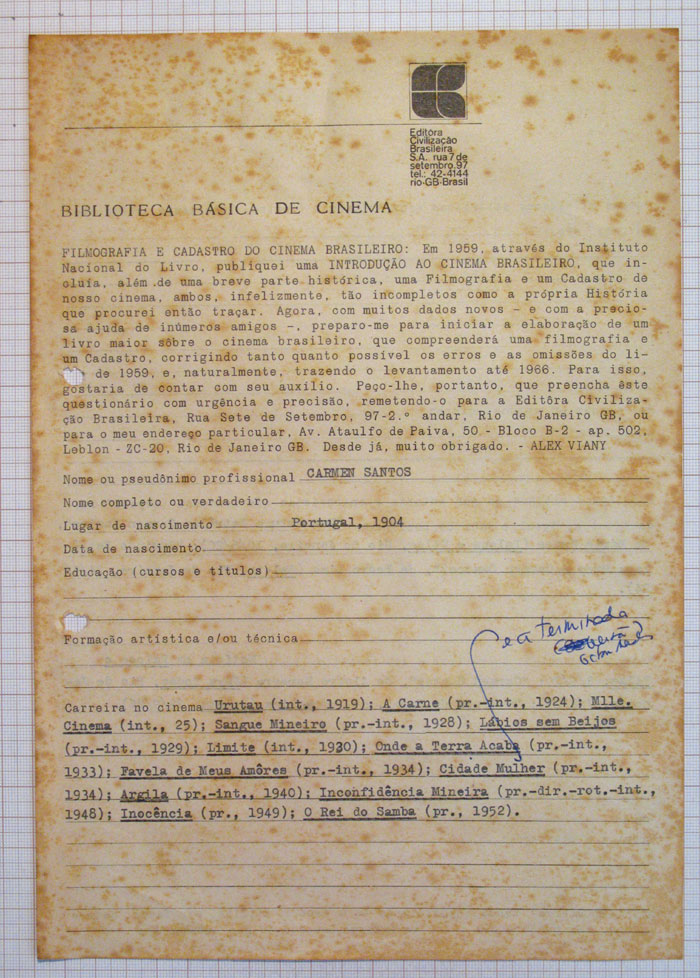 Editôra
Civilização
Brasileira
S.A. rua 7 de
setembro, 97
tel.: 42-4144
rio-GB-Brasil
BIBLIOTECA BÁSICA DE CINEMA
FILMOGRAFIA E CADASTRO DO CINEMA BRASILEIRO: Em 1959, através do Instituto
Nacional do Livro, publiquei uma INTRODUÇÃO AO CINEMA BRASILEIRO, que in-
oluía, além de uma breve parte histórica, uma Filmografia e um Cadastro de
nosso cinema, ambos, infelizmente, tão incompletos como a própria História
que procurei então traçar. Agora, com muitos dados novos - e com a precio-
sa ajuda de inúmeros amigos -, preparo-me para iniciar a elaboração de um
livro maior sôbre o cinema brasileiro, que compreenderá uma filmografia e
um Cadastro, corrigindo tanto quanto possível os erros e as omissões do li-
de 1959, e, naturalmente, trazendo o levantamento até 1966. Para isso,
gostaria de contar com seu auxílio. Peço-lhe, portanto, que preencha êste
questionário com urgência e precisão, remetendo-o para a Editôra Civiliza-
ção Brasileira, Rua Sete de Setembro, 97-2.º andar, Rio de Janeiro GB, ou
para o meu endereço particular, Av. Ataulfo de Paiva, 50 - Bloco B-2 - ap. 502,
Leblon - ZC-20, Rio de Janeiro GB. Desde já, muito obrigado. - ALEX VIANY
Nome ou pseudônimo profissional CARMEN SANTOS
Nome completo ou verdadeiro
Lugar de nascimento Portugal, 1904
Data de nascimento
Educação (cursos e títulos)
e a terminada
Formação artística e/ou técnica
Carreira no cinema Urutau (int., 1919); A Carne (pr.-int., 1924); Mlle.
Cinema (int., 25); Sangue Mineiro (pr.-int., 1928); Lábios sem Beijos
(pr.-int., 1929); Limite (int., 1930); Onde a Terra Acaba (pr.-int.,
1933); Favela de Meus Amôres (pr.-int., 1934); Cidade Mulher (pr.-int.,
1934); Argila (pr.-int., 1940); Inconfidência Mineira (pr.-dir.-rot.-int.,
1948); Inocência (pr., 1949); O Rei do Samba (pr., 1952).